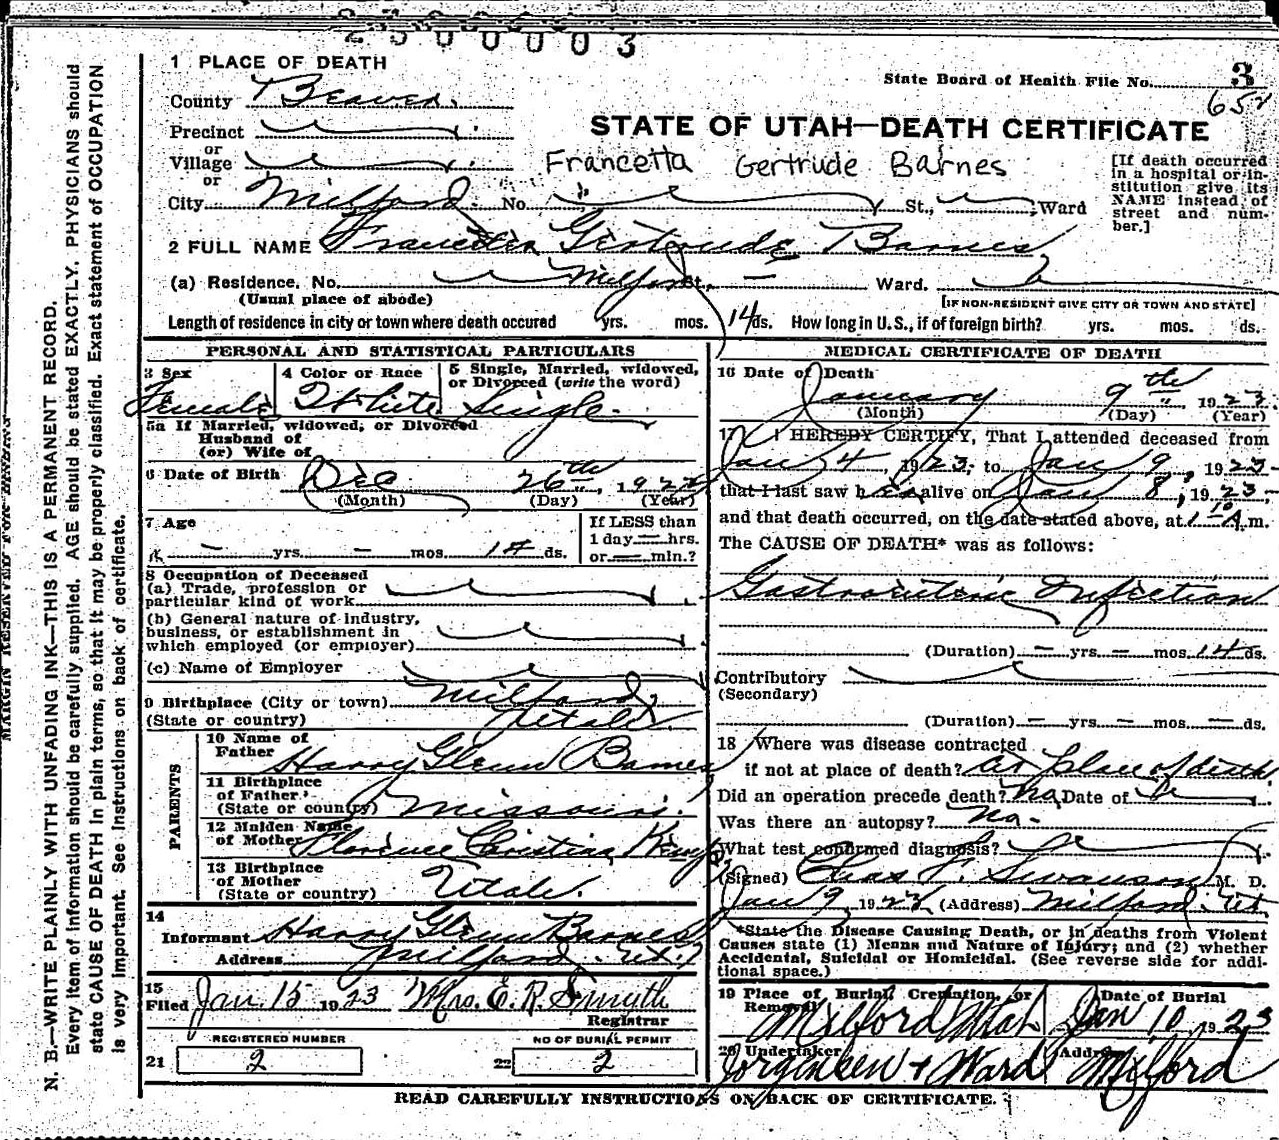 2300003
1 PLACE OF DEATH
State Board of Health File No. 3
County Beaver.
652
Precinct
STATE OF UTAH—DEATH CERTIFICATE
or
Village
Francetta Gertrude Barnes
[If death occurred in a hospital or institution give its NAME instead of street and number.]
or
City Milford No. St., Ward
2 FULL NAME Francetta Gertrude Barnes
(a) Residence, No. Milford St. — Ward.
(Usual place of abode)
[IF NON-RESIDENT GIVE CITY OR TOWN AND STATE]
Length of residence in city or town where death occured yrs. mos. 14 ds. How long in U.S., if of foreign birth? yrs. mos. ds.
PERSONAL AND STATISTICAL PARTICULARS
3 Sex
Female
4 Color or Race
White
5 Single, Married, widowed,
or Divorced (write the word)
Single
5a If Married, widowed, or Divorced
Husband of
(or) Wife of
6 Date of Birth Dec 26th, 1922
(Month) (Day) (Year)
7 Age
— yrs. — mos. 14 ds.
If LESS than
1 day — hrs.
or — min.?
8 Occupation of Deceased
(a) Trade, profession or
particular kind of work
(b) General nature of industry,
business, or establishment in
which employed (or employer)
(c) Name of Employer
9 Birthplace (City or town) Milford,
(State or country) Utah
PARENTS
10 Name of
Father Harry Glenn Barnes
11 Birthplace
of Father
(State or country) Missouri.
12 Maiden Name
of Mother Florence Christina King
13 Birthplace
of Mother
(State or country) Utah.
14
Informant Harry Glenn Barnes
Address Milford, Ut.
15
Filed Jan. 15 1923 Mrs. E. R. Smyth
Registrar
REGISTERED NUMBER
21 2
NO OF BURIAL PERMIT
22 2
MEDICAL CERTIFICATE OF DEATH
16 Date of Death
January 9th 1923
(Month) (Day) (Year)
17 I HEREBY CERTIFY, That I attended deceased from
Jan 4, 1923 to Jan 9, 1923
that I last saw her alive on Jan 8, 1923
and that death occurred, on the date stated above, at 1 10 A.m.
The CAUSE OF DEATH* was as follows:
Gastroenteric Infection
(Duration) — yrs. — mos. 14 ds.
Contributory
(Secondary)
(Duration) — yrs. — mos. — ds.
18 Where was disease contracted
if not at place of death? At place of death
Did an operation precede death? No Date of
Was there an autopsy? No.
What test confirmed diagnosis?
(Signed) Chas F. Swanson M. D.
Jan 9, 1923 (Address) Milford, Ut.
*State the Disease Causing Death, or in deaths from Violent
Causes state (1) Means and Nature of Injury; and (2) whether
Accidental, Suicidal or Homicidal. (See reverse side for addi-
tional space.)
19 Place of Burial, Cremation, or
Removal Milford Utah
Date of Burial
Jan 10 1923
20 Undertaker
Jorgensen & Ward
Address
Milford
READ CAREFULLY INSTRUCTIONS ON BACK OF CERTIFICATE.
MARGIN RESERVED FOR BINDING
N. B.—WRITE PLAINLY WITH UNFADING INK—THIS IS A PERMANENT RECORD.
Every item of information should be carefully supplied. AGE should be stated EXACTLY. PHYSICIANS should
state CAUSE OF DEATH in plain terms, so that it may be properly classified. Exact statement of OCCUPATION
is very important. See instructions on back of certificate.